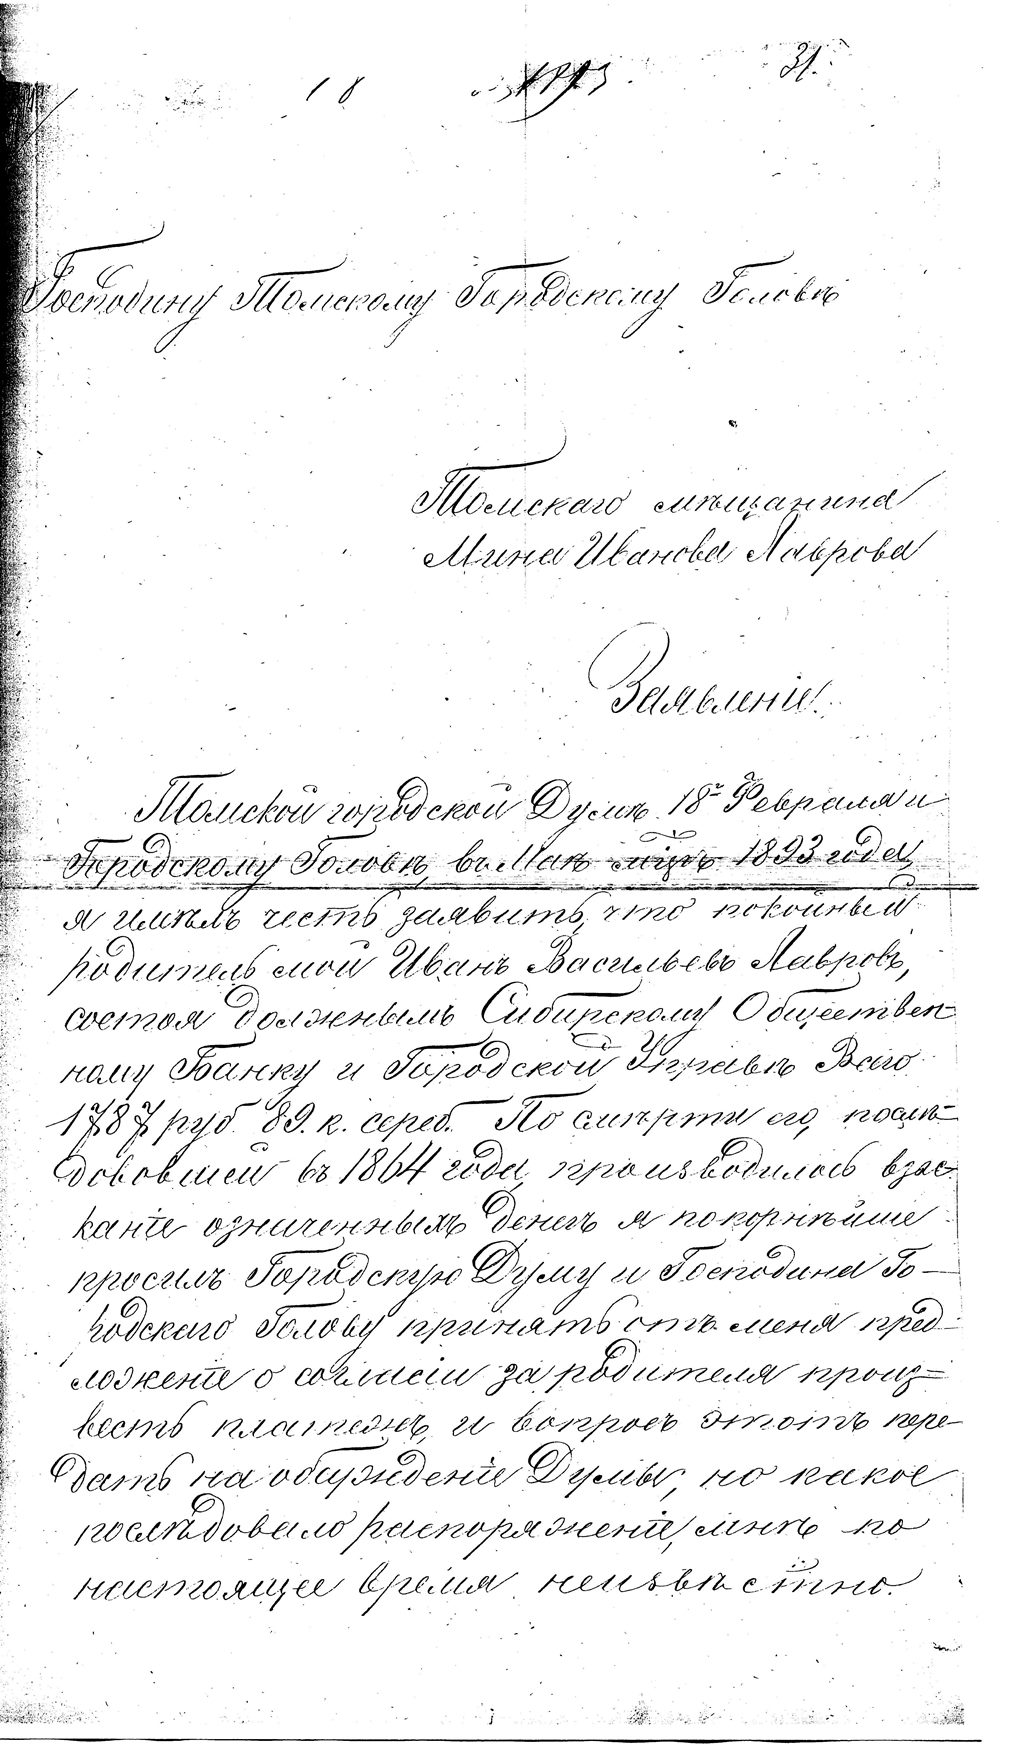 31.
Господину Томскому Городскому Головѣ
Томскаго мѣщанина
Мина Иванова Лаврова
Заявленіе.
Томской городской Думѣ 18го Февраля и
Городскому Головѣ въ Маѣ мцѣ 1893 года,
я имѣлъ честь заявить, что покойный
родитель мой Иванъ Васильевъ Лавровъ,
состоя должнымъ Сибирскому Обществен
ному Банку и Городской Управѣ Всего
1787 руб. 89. к. сереб. По смерти его, послѣ=
дововшей въ 1864 года, производилось взыс
каніе означенныхъ денегъ я покорнѣйше
просилъ Городскую Думу и Господина Го-
родскаго Голову принять отъ меня пред-
ложеніе о согласіи за родителя произ=
весть платежъ, и вопросъ этотъ пере-
дать на обсужденіе Думы, но какое
послѣдовало распоряженіе, мнѣ по
настоящее время неизвѣстно.